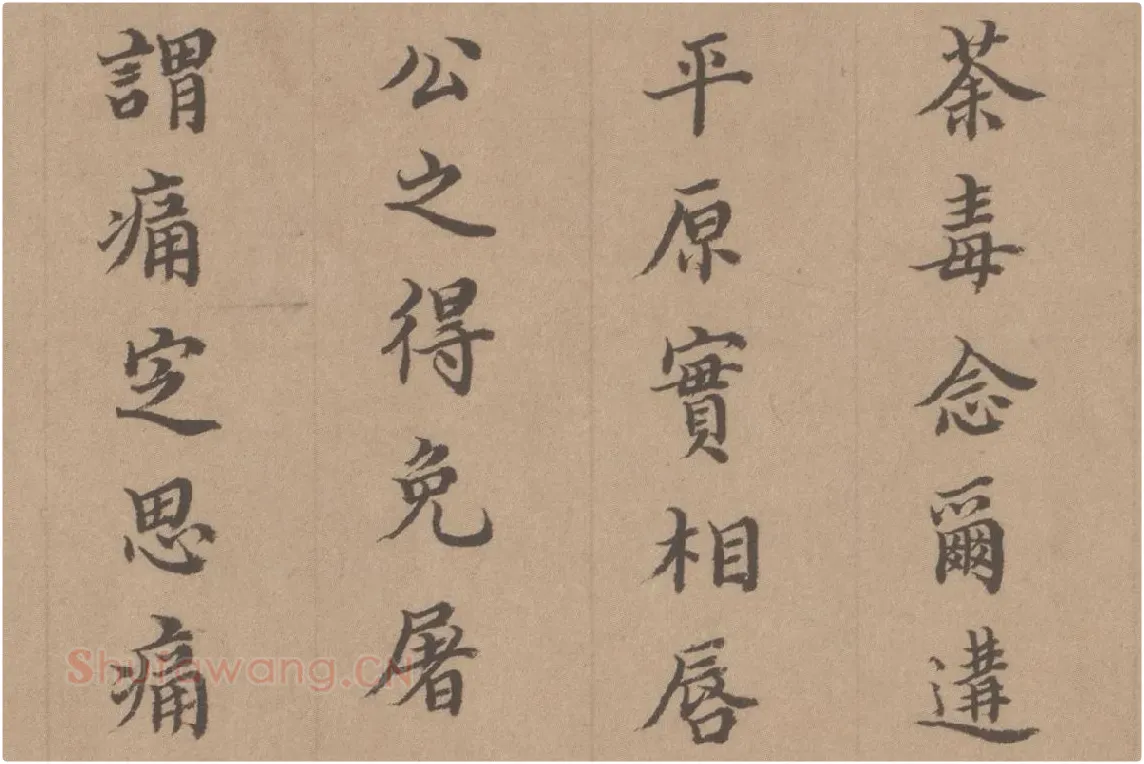 荼毒念爾遘
平原實相唇
公之得免屠
謂痛定思痛
Shufawang.CN